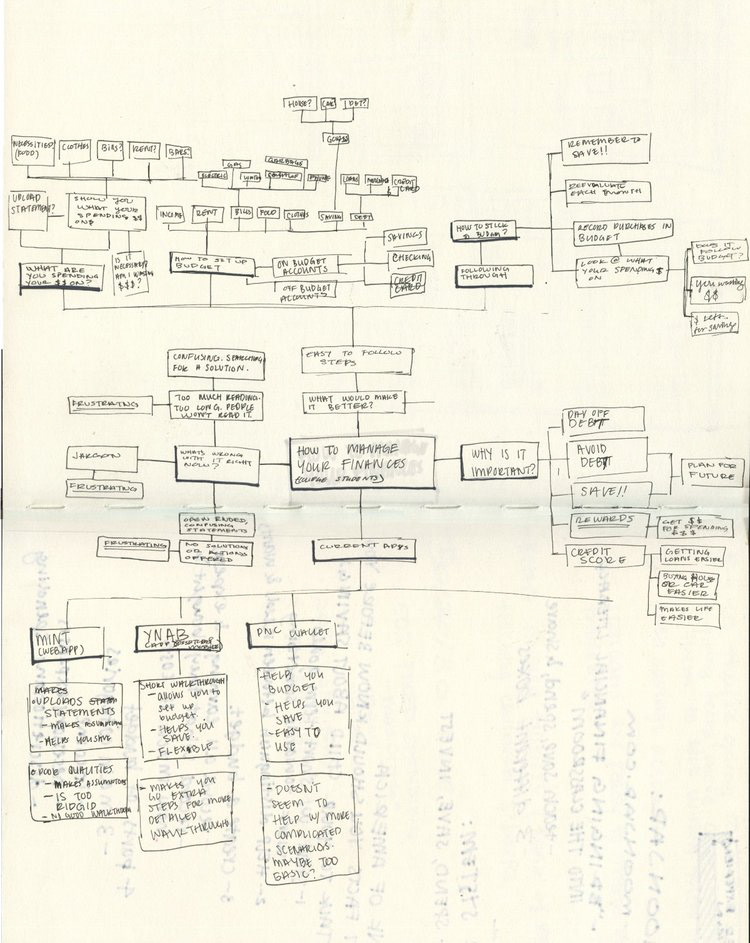 HOUSE?
CAR
DEBT?
GOALS
NECESSITIES?
(FOOD)
CLOTHES
BILLS?
RENT?
BARS?
UPLOAD
STATEMENT?
SHOW YOU
WHAT YOUR
SPENDING $$
ON
IS IT
NECESSARY?
AM I WASTING
$$$?
WHAT ARE
YOU SPENDING
YOUR $$ ON?
GAS
GARBAGE
ELECTRIC
WATER
PHONE
INCOME
RENT
BILLS
FOOD
CLOTHES
SAVING
DEBT
LOANS
CREDIT
CARD
HOW TO SET UP
BUDGET
ON BUDGET
ACCOUNTS
OFF BUDGET
ACCOUNTS
SAVINGS
CHECKING
CREDIT
CARD
HOW TO STICK
TO BUDGET?
FOLLOWING
THROUGH
REMEMBER TO
SAVE!!
REEVALUATE
EACH MONTH
RECORD PURCHASES IN
BUDGET
LOOK @ WHAT
YOUR SPENDING $
ON
DOES IT
FOLLOW
BUDGET?
you wasting
$$
$ left
for saving
CONFUSING. SEARCHING
FOR A SOLUTION.
EASY TO FOLLOW
STEPS
FRUSTRATING
TOO MUCH READING.
TOO LONG. PEOPLE
WON'T READ IT.
WHAT WOULD MAKE
IT BETTER?
JARGON
FRUSTRATING
WHATS WRONG
WITH IT RIGHT
NOW?
HOW TO MANAGE
YOUR FINANCES
(COLLEGE STUDENTS)
WHY IS IT
IMPORTANT?
PAY OFF
DEBT
AVOID
DEBT
SAVE!!
PLAN FOR
FUTURE
REWARDS
GET $$
FOR SPENDING
$$$
CREDIT
SCORE
GETTING
LOANS EASIER
BUYING HOUSE
OR CAR
EASIER
MAKES LIFE
EASIER
OPEN ENDED,
CONFUSING
STATEMENTS
FRUSTRATING
NO SOLUTIONS
OR ACTIONS
OFFERED
CURRENT APPS
MINT
(WEBAPP)
YNAB
PNC WALLET
MAKES
UPLOADS
STATEMENTS
- MAKES ASSUMPTIONS
- HELPS YOU SAVE
POOR QUALITIES
- MAKES ASSUMPTIONS
- IS TOO
RIDGID
- NO GOOD WALKTHROUGH
SHORT WALKTHROUGH
- ALLOWS YOU TO
set up
budget.
- HELPS YOU
SAVE.
- FLEXIBLE
- MAKES YOU
GO EXTRA
STEPS FOR MORE
DETAILED
WALKTHROUGH
HELPS YOU
BUDGET
- HELPS YOU
SAVE
- EASY TO
USE
- DOESN'T
SEEM TO
HELP W/ MORE
COMPLICATED
SCENARIOS.
MAYBE TOO
BASIC?